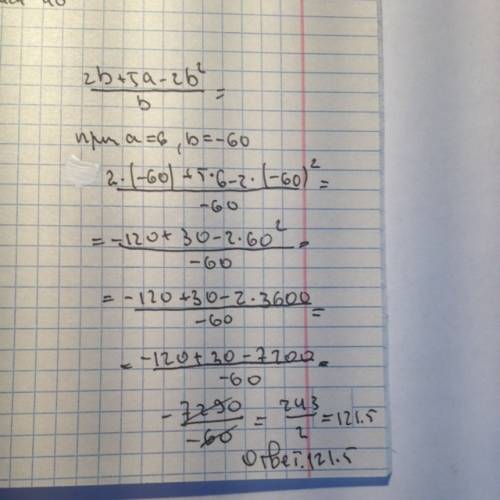 2b+5a-2b²
b =
при a=6, b=-60
2·(-60)+5·6-2·(-60)² =
-60
= -120+30-2·60² =
-60
= -120+30-2·3600 =
-60
= -120+30-7200 =
-60
- 7290 = 243 = 121.5
-60 2
Ответ: 121.5